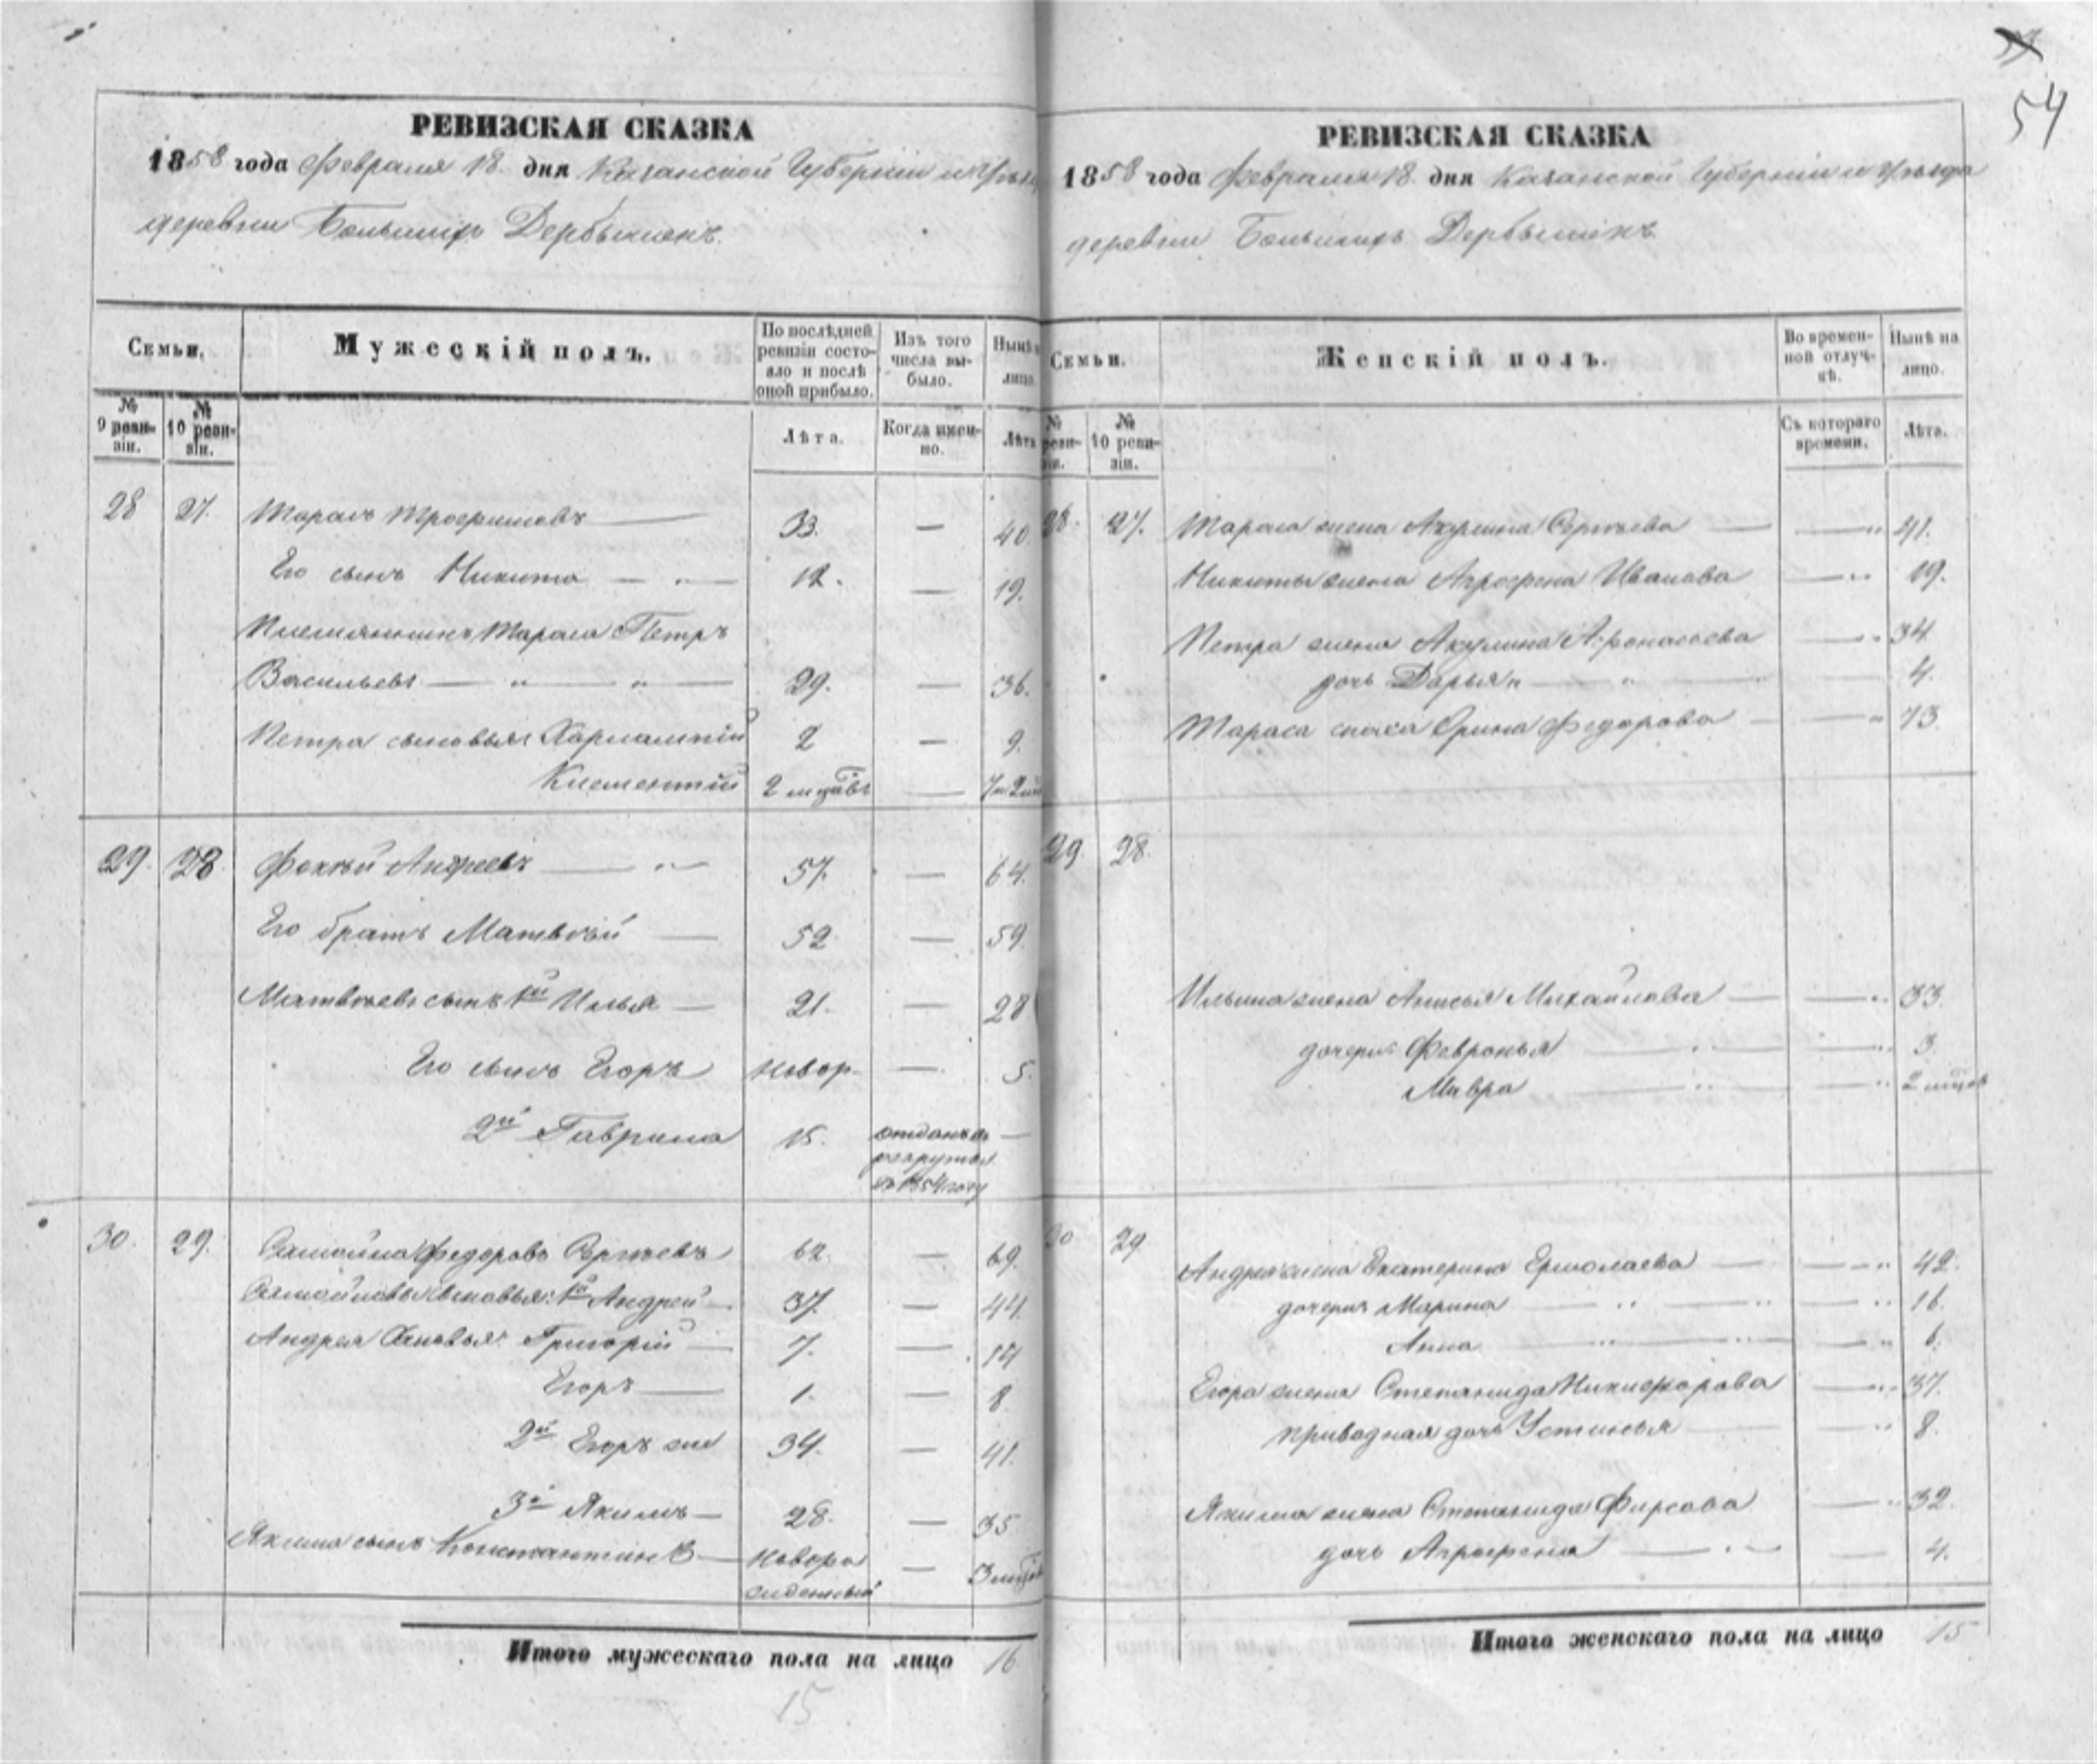 54
РЕВИЗСКАЯ СКАЗКА
1858 года Февраля 18. дня Казанской Губерніи и Уѣзда
деревни Большихъ Дербышекъ.
Семьи.
Мужескій полъ.
По послѣдней ревизіи состояло и послѣ оной прибыло.
Изъ того числа выбыло.
Нынѣ лицо.
№ 9 ревизіи.
№ 10 ревизіи.
Лѣта.
Когда именно.
Лѣта
28 27. Тарасъ Трофимовъ 33. — 40.
Его сынъ Никита — " — 12. — 19.
Племянникъ Тараса Петръ
Васильевъ — " — " — 29. — 36.
Петра сыновья: Харлампій 2 — 9.
Климентій 2 мцовъ — 7 и 2
29. 28. Фокѣй Андреевъ — " — 57. — 64.
Его братъ Матвѣй — 52 — 59.
Матвѣевъ сынъ 1й Илья — 21. — 28
Его сынъ Егоръ новор. — 5.
2й Гаврила 15. отданъ въ —
рекруты
въ 1854 году
30. 29. Самойла Федоровъ Сергѣевъ 62. — 69.
Самойловы сыновья: 1й Андрей — 37. — 44.
Андрея Сыновья: Григорій — 7. — 14
Егоръ — 1. — 8.
2й Егоръ же 34. — 41.
3й Якимъ — 28. — 35
Якима сынъ Константинъ — новоро — 3 мцов
жденный
Итого мужескаго пола на лицо 16
15
РЕВИЗСКАЯ СКАЗКА
1858 года Февраля 18. дня Казанской Губерніи и Уѣзда
деревни Большихъ Дербышекъ
Семьи.
Женскій полъ.
Во временной отлучкѣ.
Нынѣ на лицо.
№ реви- зіи.
№ 10 ревизіи.
Съ котораго времени.
Лѣта.
28. 27. Тараса жена Акулина Сергѣева — — " 41.
Никиты жена Аграфена Иванова — " 19.
Петра жена Акулина Афонасьева — " 34.
дочь Дарья " — " — 4.
Тараса сноха Орина Федорова — — " 73.
29. 28.
Ильина жена Анисья Михайлова — — " 33.
дочери: Февронья — " — " 3.
Мавра — " — " 2 мцов
30 29
Андрея жена Екатерина Ермолаева — — " 42.
дочери: Марина — " — " — " 16.
Анна " — " — — " 6.
Егора жена Степанида Никифорова — " 37.
приводная дочь Устинья — — " 8.
Якима жена Степанида Фирсова — " 32.
дочь Аграфена — " — — 4.
Итого женскаго пола на лицо 15